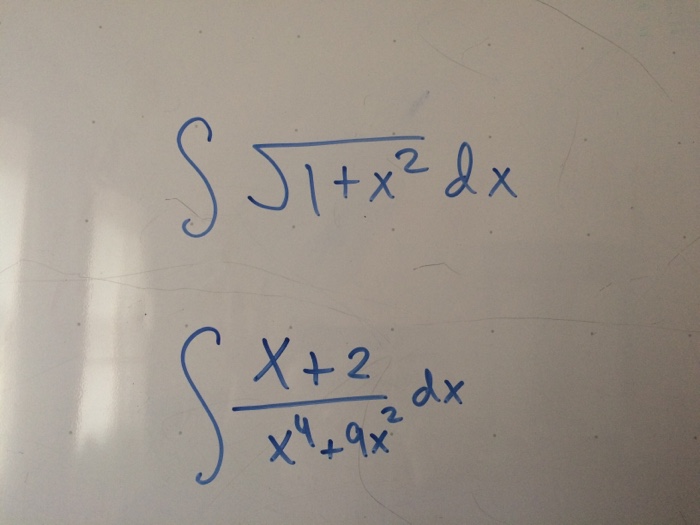 ∫ √(1+x²) dx
∫ (x+2)/(x⁴+9x²) dx